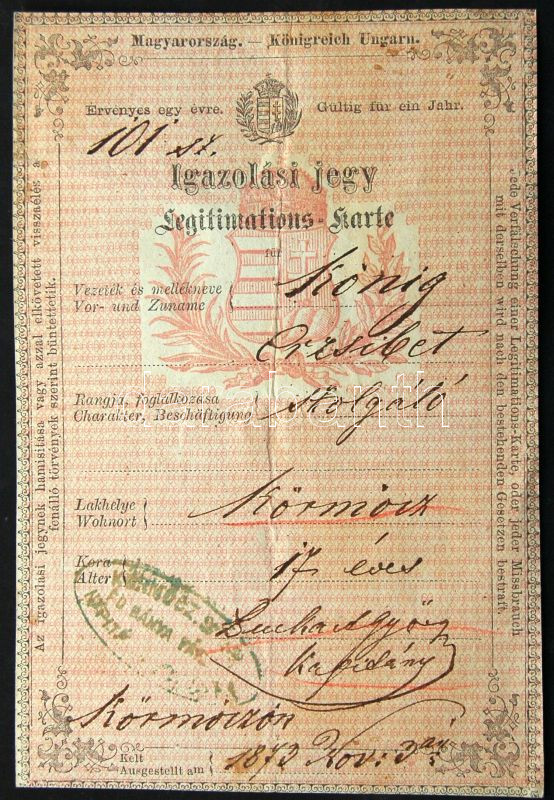 Magyarország. — Königreich Ungarn.
Érvényes egy évre. Gültig für ein Jahr.
101 sz.
Igazolási jegy
Legitimations-Karte
für
Vezeték és mellékneve
Vor- und Zuname
König
Erzsibet
Rangja, foglalkozása
Charakter, Beschäftigung
Szolgáló
Lakhelye
Wohnort
Körmöcz
Kora
Alter
17 éves
György
Kapitány
Körmöczön
Kelt
Ausgestellt am
1873 Nov: 3án
Az igazolási jegynek hamisítása vagy azzal elkövetett visszaélés a
fenálló törvények szerint büntettetik.
Jede Verfälschung einer Legitimations-Karte, oder jeder Missbrauch
mit derselben wird nach den bestehenden Gesetzen bestraft.